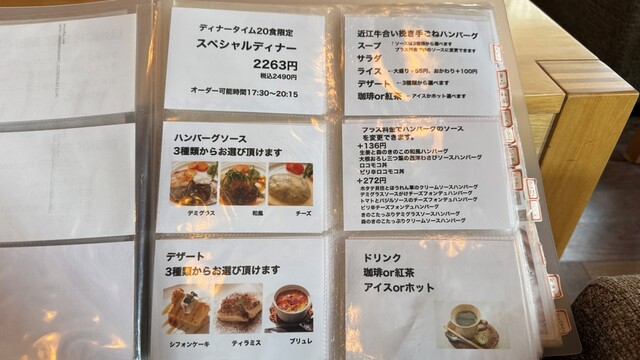 ディナータイム20食限定
スペシャルディナー
2263円
税込2490円
オーダー可能時間17:30〜20:15
近江牛合い挽き手ごねハンバーグ
スープ
サラダ
ライス ←大盛り+55円、おかわり+100円
デザート ←3種類から選べます
珈琲or紅茶 ←アイスかホット選べます
ハンバーグソース
3種類からお選び頂けます
デミグラス 和風 チーズ
プラス料金でハンバーグのソース
を変更できます。
+136円
生姜と森のきのこの和風ハンバーグ
大根おろし三つ葉の西洋わさびソースハンバーグ
ロコモコ丼
ピリ辛ロコモコ丼
+272円
ホタテ貝柱とほうれん草のクリームソースハンバーグ
デミグラスソースがけチーズフォンデュハンバーグ
トマトとバジルソースのチーズフォンデュハンバーグ
ピリ辛チーズフォンデュハンバーグ
きのこたっぷりデミグラスソースハンバーグ
森のきのこたっぷりクリームソースハンバーグ
デザート
3種類からお選び頂けます
シフォンケーキ ティラミス ブリュレ
ドリンク
珈琲or紅茶
アイスorホット